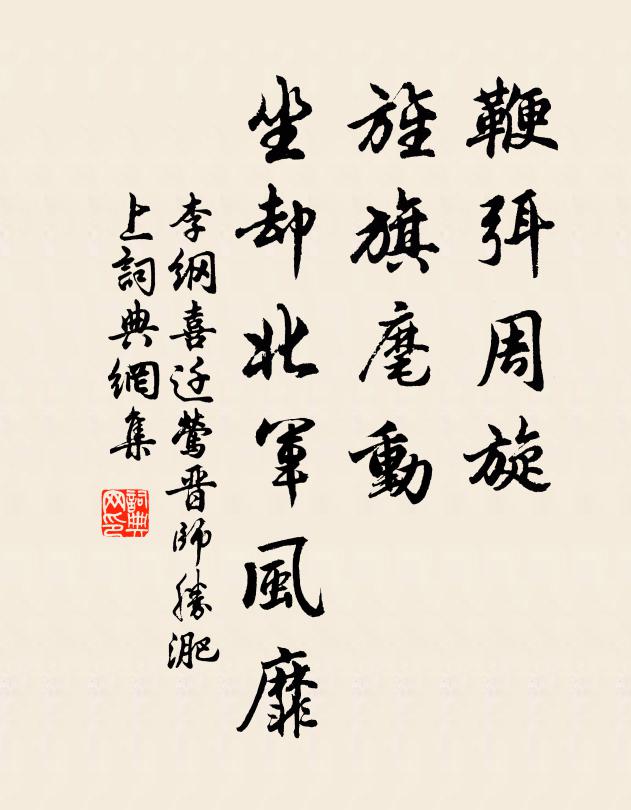 鞭弭周旋
旌旗麾動
坐却北軍風靡
李綱喜迁鶯晋師勝淝
上詞典網集
詞典网印